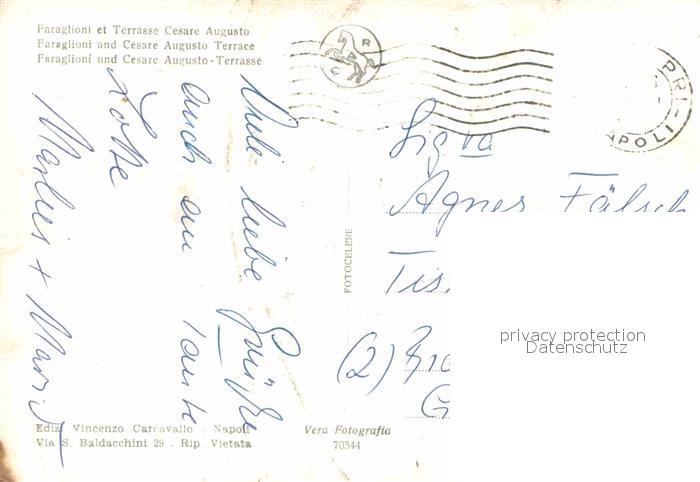 Faraglioni et Terrasse Cesare Augusto
Faraglioni and Cesare Augusto Terrace
Faraglioni und Cesare Augusto-Terrasse
Viele liebe Grüße
auch an Tante
Lotte
Marlies +
PRI -
APOLI -
Sigra
Agnes
Tis
(2)
G
FOTOCELERE
privacy protection
Datenschutz
Ediz. Vincenzo Carcavallo - Napoli
Via S. Baldacchini 29 - Rip. Vietata
Vera Fotografia
70544